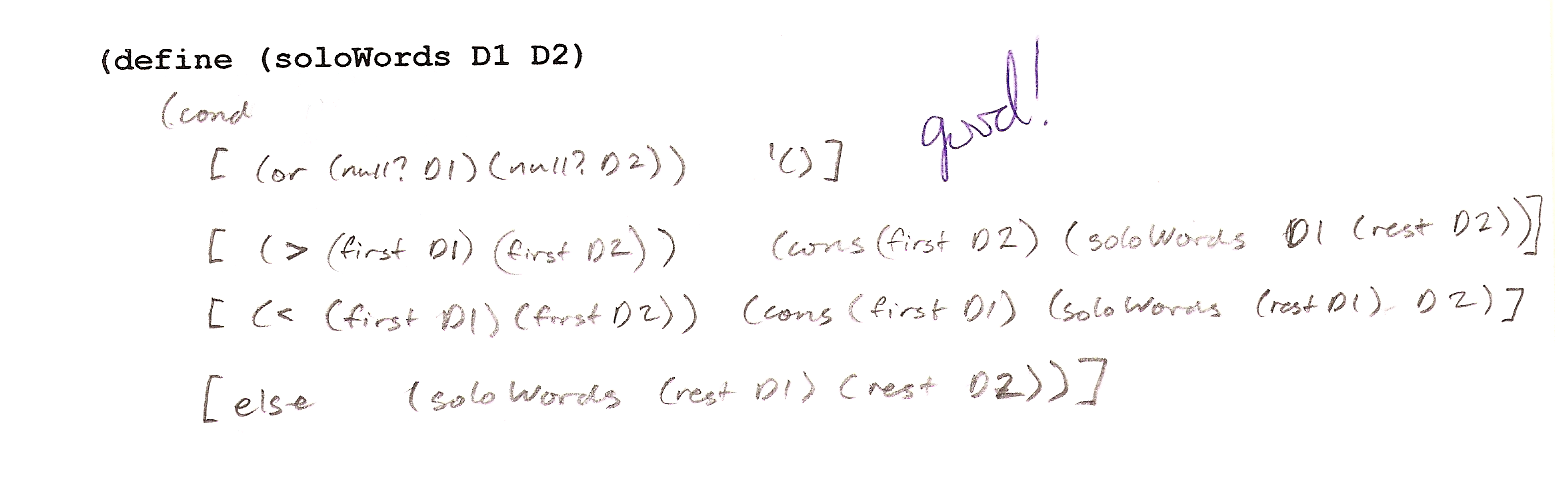 (define (soloWords D1 D2)
(cond
good!
[ (or (null? D1) (null? D2)) '() ]
[ (> (first D1) (first D2)) (cons (first D2) (soloWords D1 (rest D2)))]
[ (< (first D1) (first D2)) (cons (first D1) (soloWords (rest D1) D2)]
[else (soloWords (rest D1) (rest D2))]